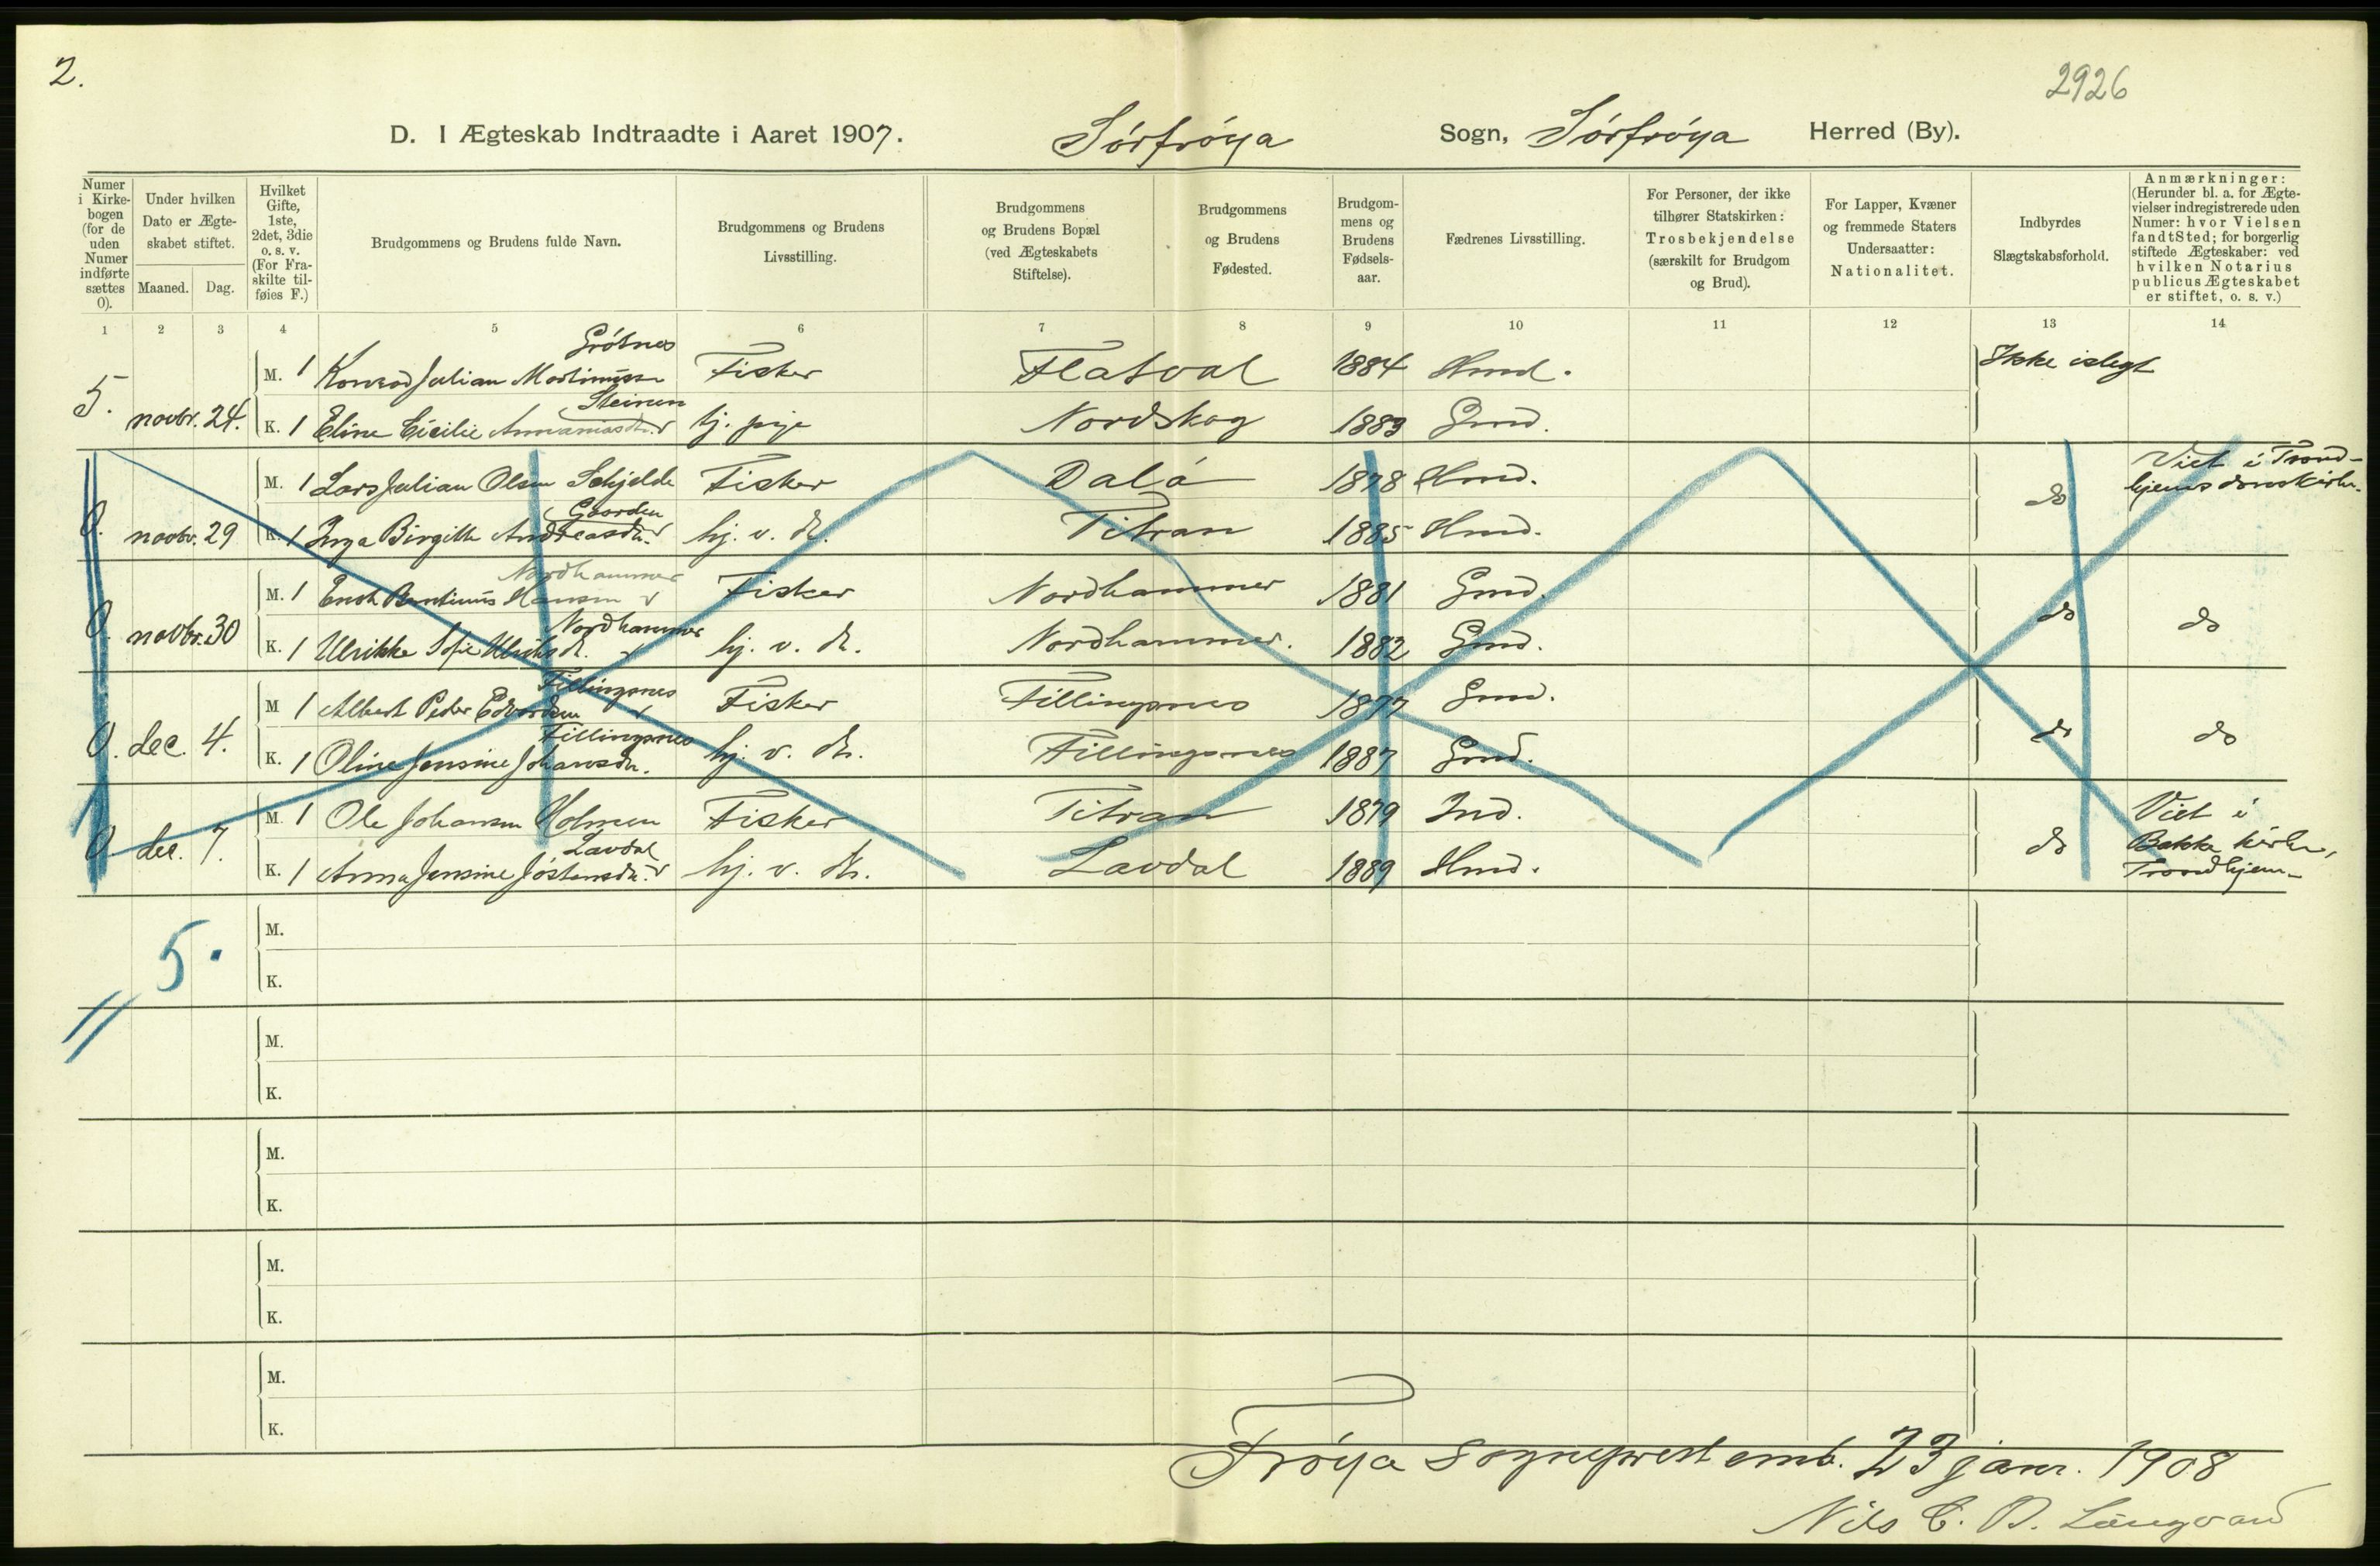 2.
2926
D. I Ægteskab Indtraadte i Aaret 1907. Sørfrøya Sogn, Sørfrøya Herred (By).
Numer i Kirkebogen (for de uden Numer indførte sættes 0).
Under hvilken Dato er Ægteskabet stiftet.
Maaned. Dag.
Hvilket Gifte, 1ste, 2det, 3die o. s. v. (For Fraskilte tilføies F.)
Brudgommens og Brudens fulde Navn.
Brudgommens og Brudens Livsstilling.
Brudgommens og Brudens Bopæl (ved Ægteskabets Stiftelse).
Brudgommens og Brudens Fødested.
Brudgommens og Brudens Fødselsaar.
Fædrenes Livsstilling.
For Personer, der ikke tilhører Statskirken: Trosbekjendelse (særskilt for Brudgom og Brud).
For Lapper, Kvæner og fremmede Staters Undersaatter: Nationalitet.
Indbyrdes Slægtskabsforhold.
Anmærkninger: (Herunder bl. a. for Ægtevielser indregistrerede uden Numer: hvor Vielsen fandt Sted; for borgerlig stiftede Ægteskaber: ved hvilken Notarius publicus Ægteskabet er stiftet, o. s. v.)
1 2 3 4 5 6 7 8 9 10 11 12 13 14
Grøtnes
M. 1 Konrad Julian Martinussen Fisker Flatval 1884 Hmd. Ikke islegt
Steinen
5. novbr. 24. K. 1 Eline Cicilie Annaniasdtr. tj. pige Nordskog 1883 Gmd.
M. 1 Lars Julian Olsen Schjelde Fisker Dalø 1878 Hmd. do Viet i Trondhjems domskirke.
Gaarden
0. novbr. 29 K. 1 Inga Birgitte Andreasdtr. hj. v. dr. Titran 1885 Hmd.
Nordhammer
M. 1 Enok Bentinus Hansen Fisker Nordhammer 1881 Gmd. do do
Nordhammer
0. novbr. 30 K. 1 Ulrikke Sofie Ulriksd. hj. v. dr. Nordhammer. 1882 Gmd.
Fillingsnes
M 1 Albert Peder Edvardsen Fisker Fillingsnes 1877 Gmd. do do
Fillingsnes
0. dec. 4. K. 1 Oline Jensine Johansdtr. hj. v. dr. Fillingsnes 1887 Gmd.
M. 1 Ole Johansen Holmen Fisker Titran 1879 Ind. do Viet i Bakke kirke, Trondhjem
Lavdal
0. dec. 7. K. 1 Anna Jensine Jøstensdtr. hj. v. dr. Lavdal 1889 Hmd.
5.
M.
K.
M.
K.
M.
K.
M.
K.
M.
K.
Frøya sogneprestemb. 23 janr. 1908
Nils C. D.